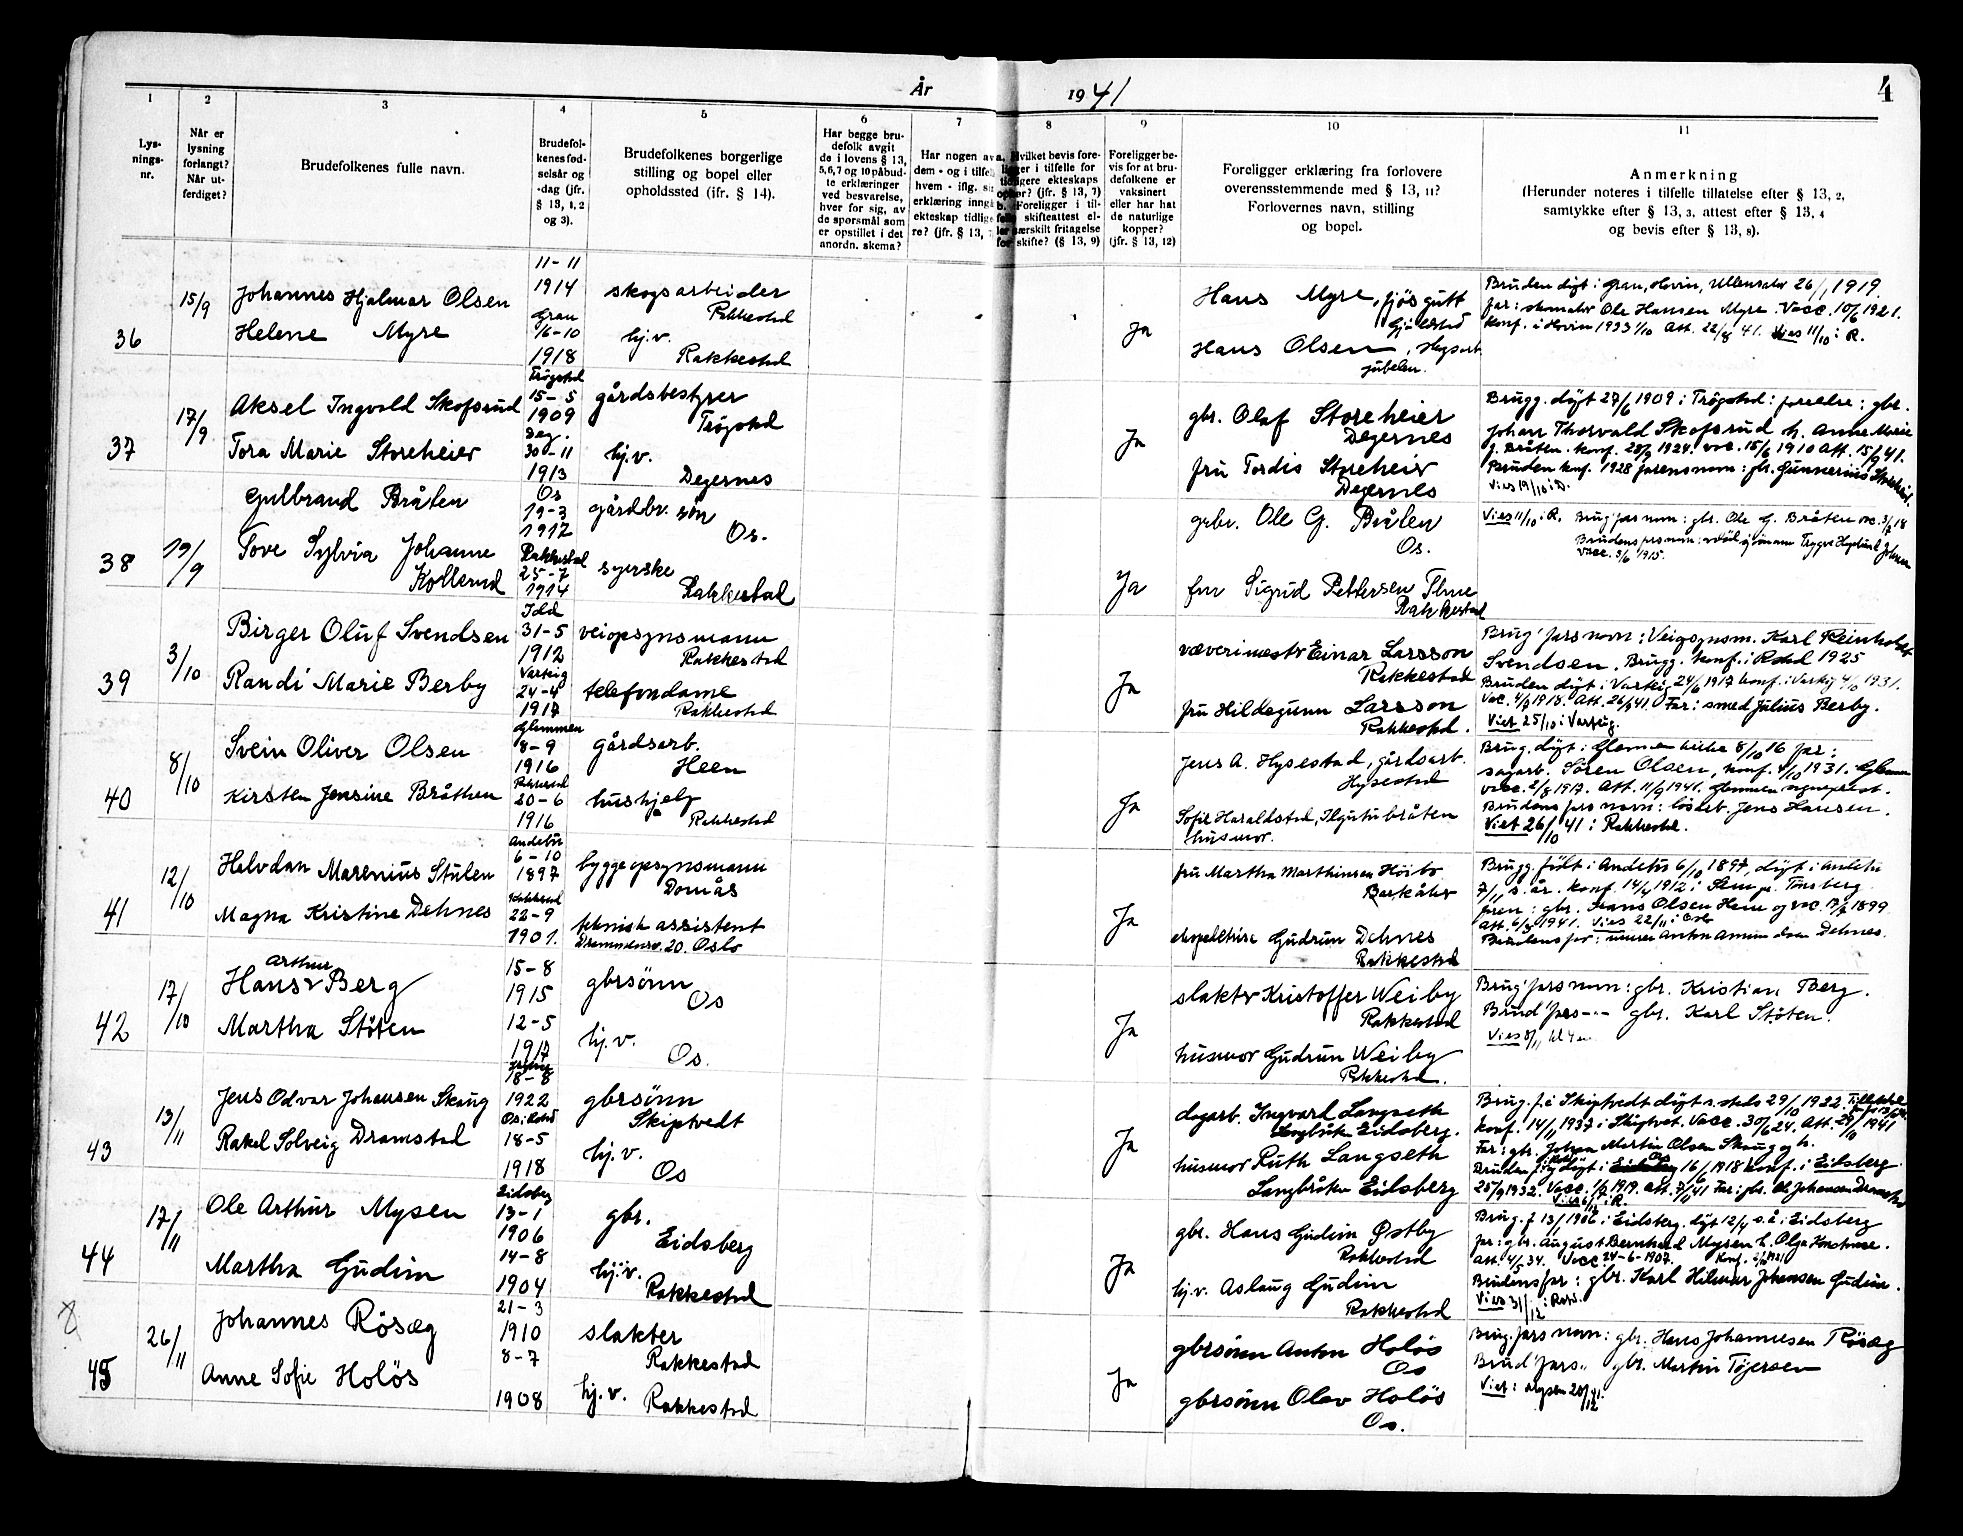 År 1941
4
1 2 3 4 5 6 7 8 9 10 11
Lys-
nings-
nr.
Når er
lysning
forlangt?
Når ut-
ferdiget?
Brudefolkenes fulle navn.
Brudefol-
kenes fød-
selsår og
-dag (jfr.
§ 13, 1, 2
og 3).
Brudefolkenes borgerlige
stilling og bopel eller
opholdssted (jfr. § 14).
Har begge bru-
defolk avgit
de i lovens § 13,
5, 6, 7 og 10 påbud-
te erklæringer
ved besvarelse,
hver for sig, av
de spørsmål som
er opstillet i det
anordn. skema?
Har nogen av
dem - og i tilfelle
hvem - iflg.
erklæring inngå
ekteskap tidlige-
re? (jfr. § 13,
a. Hvilket bevis fore-
ligger i tilfelle for
tidligere ekteskaps
ophør? (jfr. § 13, 7)
b. Foreligger i til-
felle skifteattest el-
ler særskilt fritagelse
for skifte? (§ 13, 9)
Foreligger be-
vis for at bru-
defolkene er
vaksinert
eller har hat
de naturlige
kopper?
(jfr. § 13, 12)
Foreligger erklæring fra forlovere
overensstemmende med § 13, 11?
Forlovernes navn, stilling
og bopel.
Anmerkning
(Herunder noteres i tilfelle tillatelse efter § 13, 2,
samtykke efter § 13, 3, attest efter § 13, 4
og bevis efter § 13, 8).
36
15/9
Johannes Hjalmar Olsen
Helene Myre
11-11
1914
Gran
1/6-10
1918
skogsarbeider
Rakkestad
hj.v.
Rakkestad
Ja
Hans Myre, fjøsgutt
Hans Olsen,
Bruden døpt i Gran, Hovin, Ullensaker 26/1 1919.
far: Ole Hansen Myre. Vacc. 10/6 1921.
Konf. i Hovin 1933 1/10 Att. 22/8 41. Vies 11/10 i R.
37
17/9
Aksel Ingvald Skofsrud
Tora Marie Storeheier
Trøgstad
15-5
1909
Deg.
30-11
1913
gårdsbestyrer
Trøgstad
hj.v.
Degernes
Ja
gbr. Olaf Storeheier
Degernes
fru Tordis Storeheier
Degernes
Brugg. døpt 27/6 1909 i Trøgstad: foreldre: gbr.
Johan Thorvald Skofsrud h. Anne Marie
f. Bråten. konf. 28/9 1924. vac. 15/6 1910 Att. 15/9 41.
Bruden konf. 1928 farens navn: gbr. Gunnerius Storeheier.
Vies 19/10 i D.
38
19/9
Gulbrand Bråten
Tove Sylvia Johanne
Kollerud
Os
19-3
1912
Rakkestad
25-7
1914
gårdbr. søn
Os.
syerske
Rakkestad
Ja
grbr. Ole G. Bråten
Os.
fru Sigrid Pettersen
Rakkestad
Vies 11/10 i R. Brug' fars navn: gbr. Ole G. Bråten vac. 3/7 18
Brudens fars navn:
vacc. 3/6 1915.
39
3/10
Birger Oluf Svendsen
Randi Marie Berby
Idd
31-5
1912
Varteig
24-4
1917
veiopsynsmann
Rakkestad
telefondame
Rakkestad
Ja
væverimester Einar Larsson
Rakkestad
fru Hildegunn Larsson
Rakkestad.
Brug' fars navn: Veiopsynsm. Karl Reinholdt
Svendsen. Brugg. konf. i Rstad 1925
Bruden døpt i Varteig 24/6 1917 konf. i Varteig 4/10 1931.
Vac. 4/9 1918. Att. 26/9 41. Far: smed Julius Berby.
Viet 25/10 i Varteig.
40
8/10
Svein Oliver Olsen
Kirsten Jensine Bråthen
Glemmen
8-9
1916
Rakkestad
20-6
1916
gårdsarb.
Heen
hushjelp
Rakkestad
Ja
Jens A. Hysestad, gårdsarb.
Hysestad
Sofie Haraldstad,
husmor.
Brug. døpt i Glemmen kirke 8/10 16 far:
sagarb. Søren Olsen, konf. 4/10 1931. Glemmen
vacc. 2/8 1917. Att. 11/9 1941. Glemmen sogneprest.
Brudens fars navn: løsarb. Jens Hansen.
Viet 26/10 41 i Rakkestad.
41
12/10
Halvdan Marenius Stulen
Magna Kristine Dehnes
Andebu
6-10
1897
Rakkestad
22-9
1901.
byggeopsynsmann
Domås
teknisk assistent
Drammensv. 20. Oslo
Ja
fru Martha Marthinsen Høibo
Barkåker
ekspeditrise Gudrun Dehnes
Rakkestad
Brugg. født i Andebu 6/10 1897, døpt i Andebu
7/11 s. år. konf. 14/4 1912 i Sem pr. Tønsberg.
faren: gbr. Hans Olsen og vac. 17/9 1899
Att. 6/8 1941. Vies 22/11 i Oslo
Brudens far: murer Anton Amundsen Dehnes.
42
17/10
Hans Arthur Berg
Martha Støten
15-8
1915
12-5
1917
gbrsønn
Os
hj.v.
Os.
Ja
slakter Kristoffer Weiby
Rakkestad
husmor Gudrun Weiby
Rakkestad.
Brug' fars navn: gbr. Kristian Berg.
Brud' fars -"- gbr. Karl Støten.
Vies 8/11
43
13/11
Jens Odvar Johansen Skaug
Rakel Solveig Dramstad
18-8
1922
Os i Rstad
18-5
1918
gbrsønn
Skiptvedt
hj.v.
Os
Ja
dagarb. Ingvarl Langseth
Langbråten Eidsberg.
husmor Ruth Langseth
Langbråten Eidsberg
Brug. f. i Skiptvedt døpt s. steds 29/10 1922.
konf. 14/11 1937 i Skiptvet. Vacc. 30/6 24. Att. 29/10 1941
Far: gbr. Johan Martin Olsen Skaug og h.
Bruden døpt i Os 16/6 1918 konf. i Eidsberg
25/9 1932. Vacc. 1/9 1919. Att. 7/11 41 Far: gbr. Ole Johansen Dramstad
Vies 6/12 i R.
44
17/11
Ole Arthur Mysen
Martha Gudim
Eidsberg
13-1
1906
14-8
1904
gbr.
Eidsberg
hj.v.
Rakkestad
Ja
gbr. Hans Gudim Østby
Rakkestad
hj.v. Aslaug Gudim
Rakkestad
Brug. f. 13/1 1906 i Eidsberg, døpt 12/4 s.å. i Eidsberg
far: gbr. August Bernhard Mysen h. Olga Konstanse.
Att. 4/5 34. Vacc. 24-6-1907.
Brudens far: gbr. Karl Hilmar Johansen Gudim.
Vies 31/12 i Rstd.
45
26/11
Johannes Rösæg
Anne Sofie Holös
21-3
1910
8-7
1908
slakter
Rakkestad
hj.v. Rakkestad
Ja
gbrsønn Anton Holös
Os
gbrsønn Olav Holös
Os.
Brug. fars navn: gbr. Hans Johannesen Rösæg
Brud' fars " gbr. Martin Tøjersen
Viet i Mysen 20/12 41.